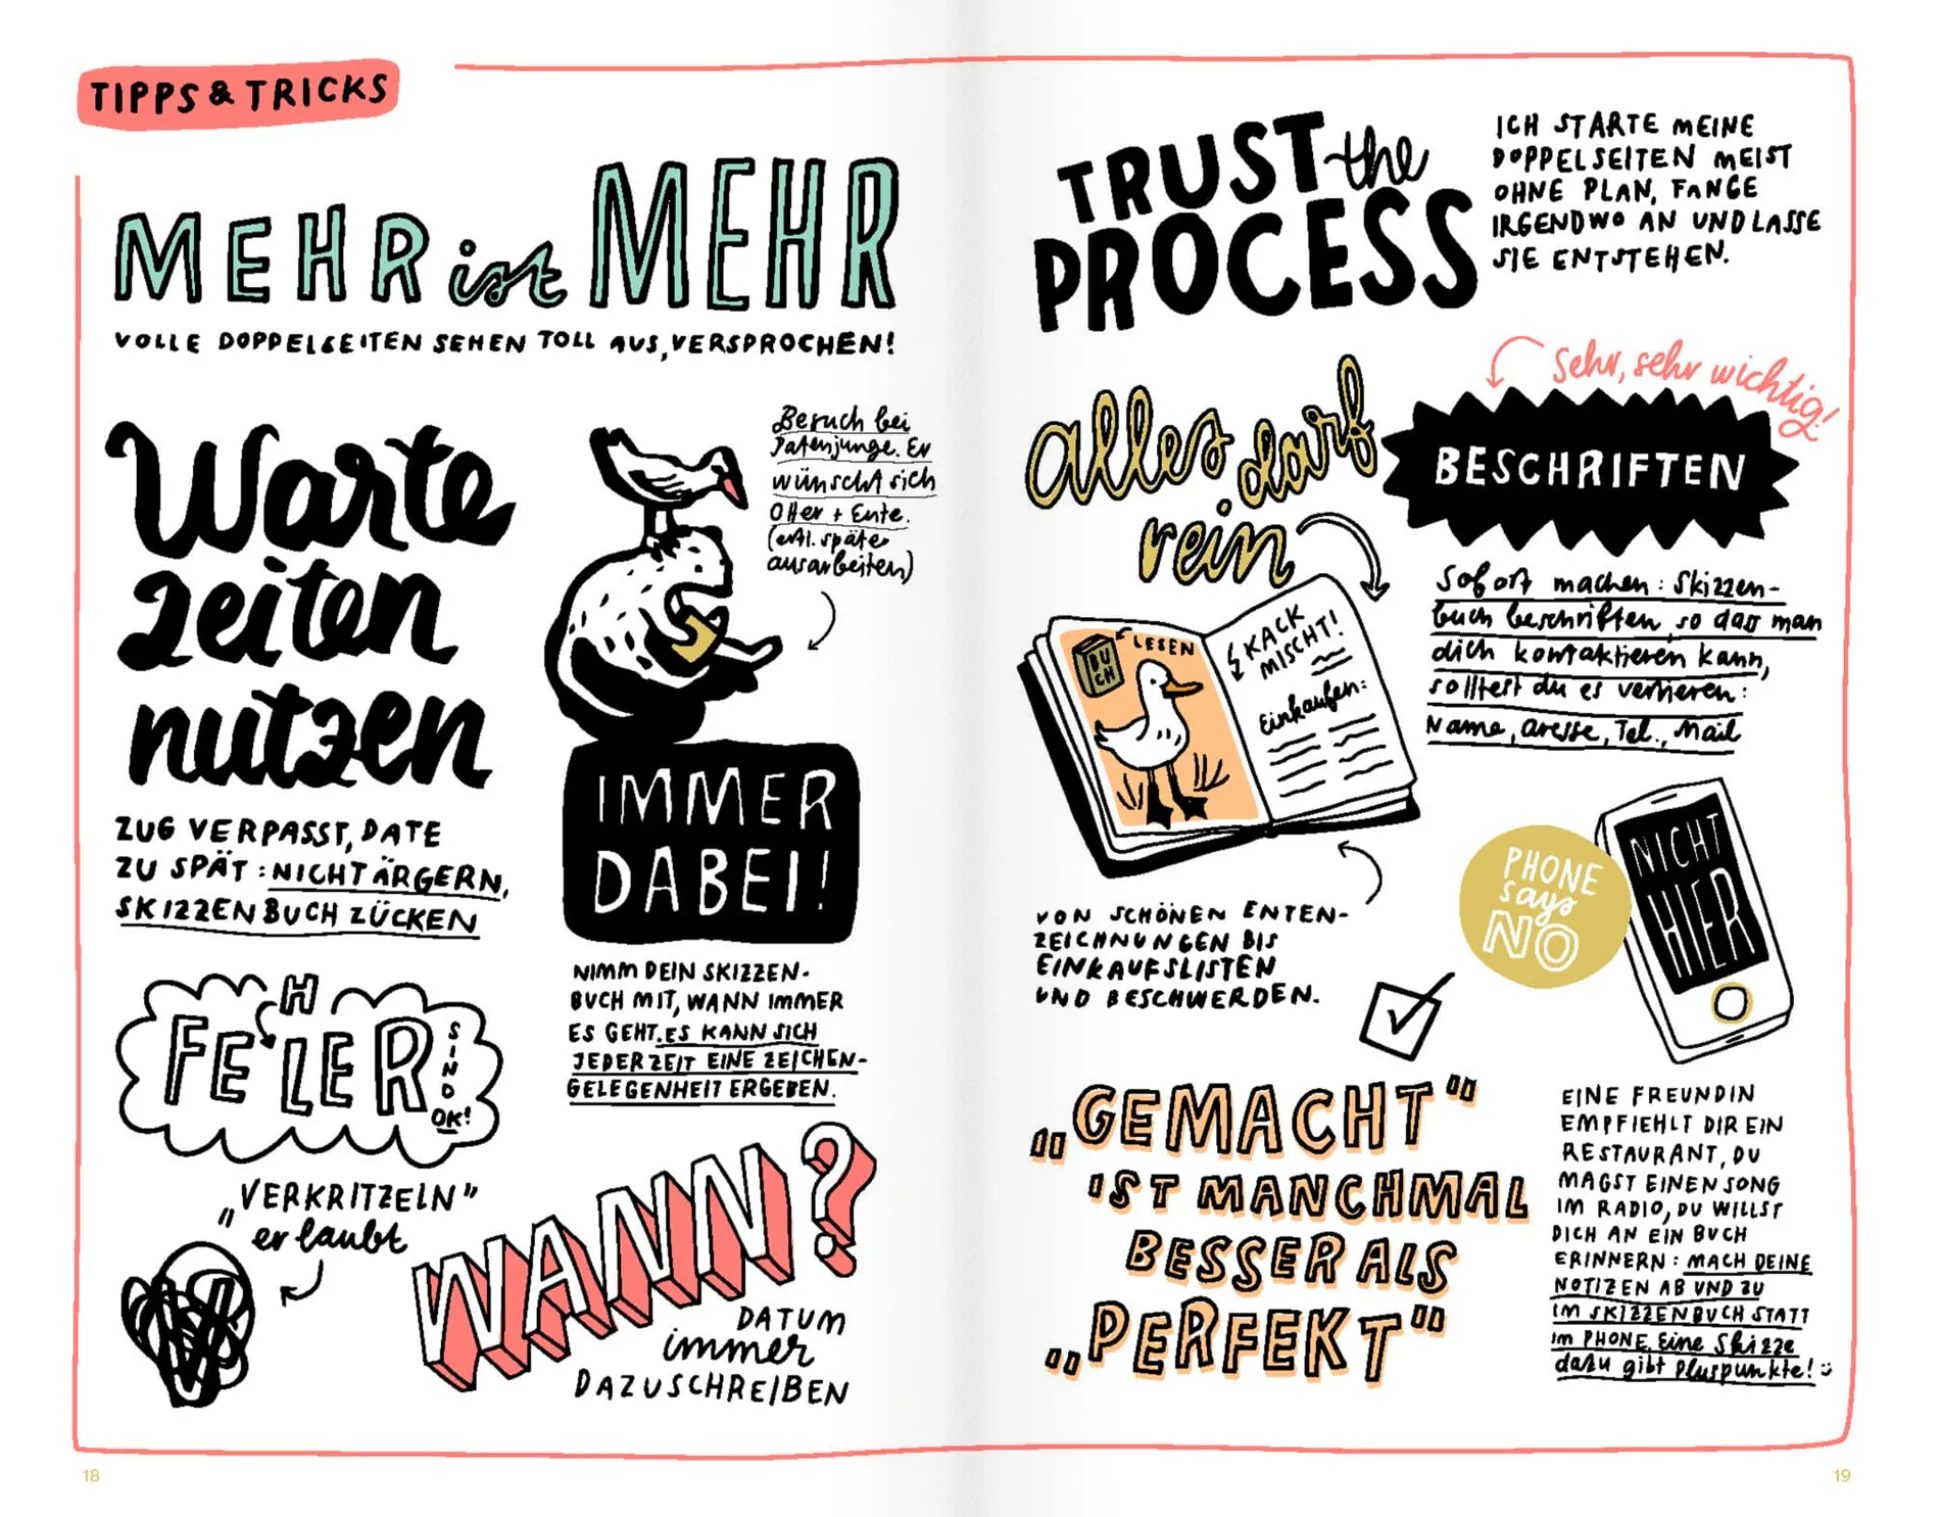 TIPPS & TRICKS
MEHR ist MEHR
VOLLE DOPPELSEITEN SEHEN TOLL AUS, VERSPROCHEN!
Warte
zeiten
nutzen
ZUG VERPASST, DATE
ZU SPÄT: NICHT ÄRGERN,
SKIZZENBUCH ZÜCKEN
Besuch bei
Patenjunge. Er
wünscht sich
Otter + Ente.
(evtl. später
ausarbeiten)
IMMER
DABEI!
NIMM DEIN SKIZZEN-
BUCH MIT, WANN IMMER
ES GEHT. ES KANN SICH
JEDERZEIT EINE ZEICHEN-
GELEGENHEIT ERGEBEN.
H
FELER
SIND
OK!
„VERKRITZELN"
erlaubt
WANN?
DATUM
immer
DAZUSCHREIBEN
18
TRUST the
PROCESS
ICH STARTE MEINE
DOPPELSEITEN MEIST
OHNE PLAN, FANGE
IRGENDWO AN UND LASSE
SIE ENTSTEHEN.
alles darf
rein
BUCH
LESEN
KACK
MISCHT!
Einkaufen:
VON SCHÖNEN ENTEN-
ZEICHNUNGEN BIS
EINKAUFSLISTEN
UND BESCHWERDEN.
Sehr, sehr wichtig!
BESCHRIFTEN
Sofort machen: Skizzen-
buch beschriften, so dass man
dich kontaktieren kann,
solltest du es verlieren:
Name, Adresse, Tel., Mail
PHONE
says
NO
NICHT
HIER
„GEMACHT"
IST MANCHMAL
BESSER ALS
„PERFEKT"
EINE FREUNDIN
EMPFIEHLT DIR EIN
RESTAURANT, DU
MAGST EINEN SONG
IM RADIO, DU WILLST
DICH AN EIN BUCH
ERINNERN: MACH DEINE
NOTIZEN AB UND ZU
IM SKIZZENBUCH STATT
IM PHONE. Eine Skizze
dazu gibt Pluspunkte!
19